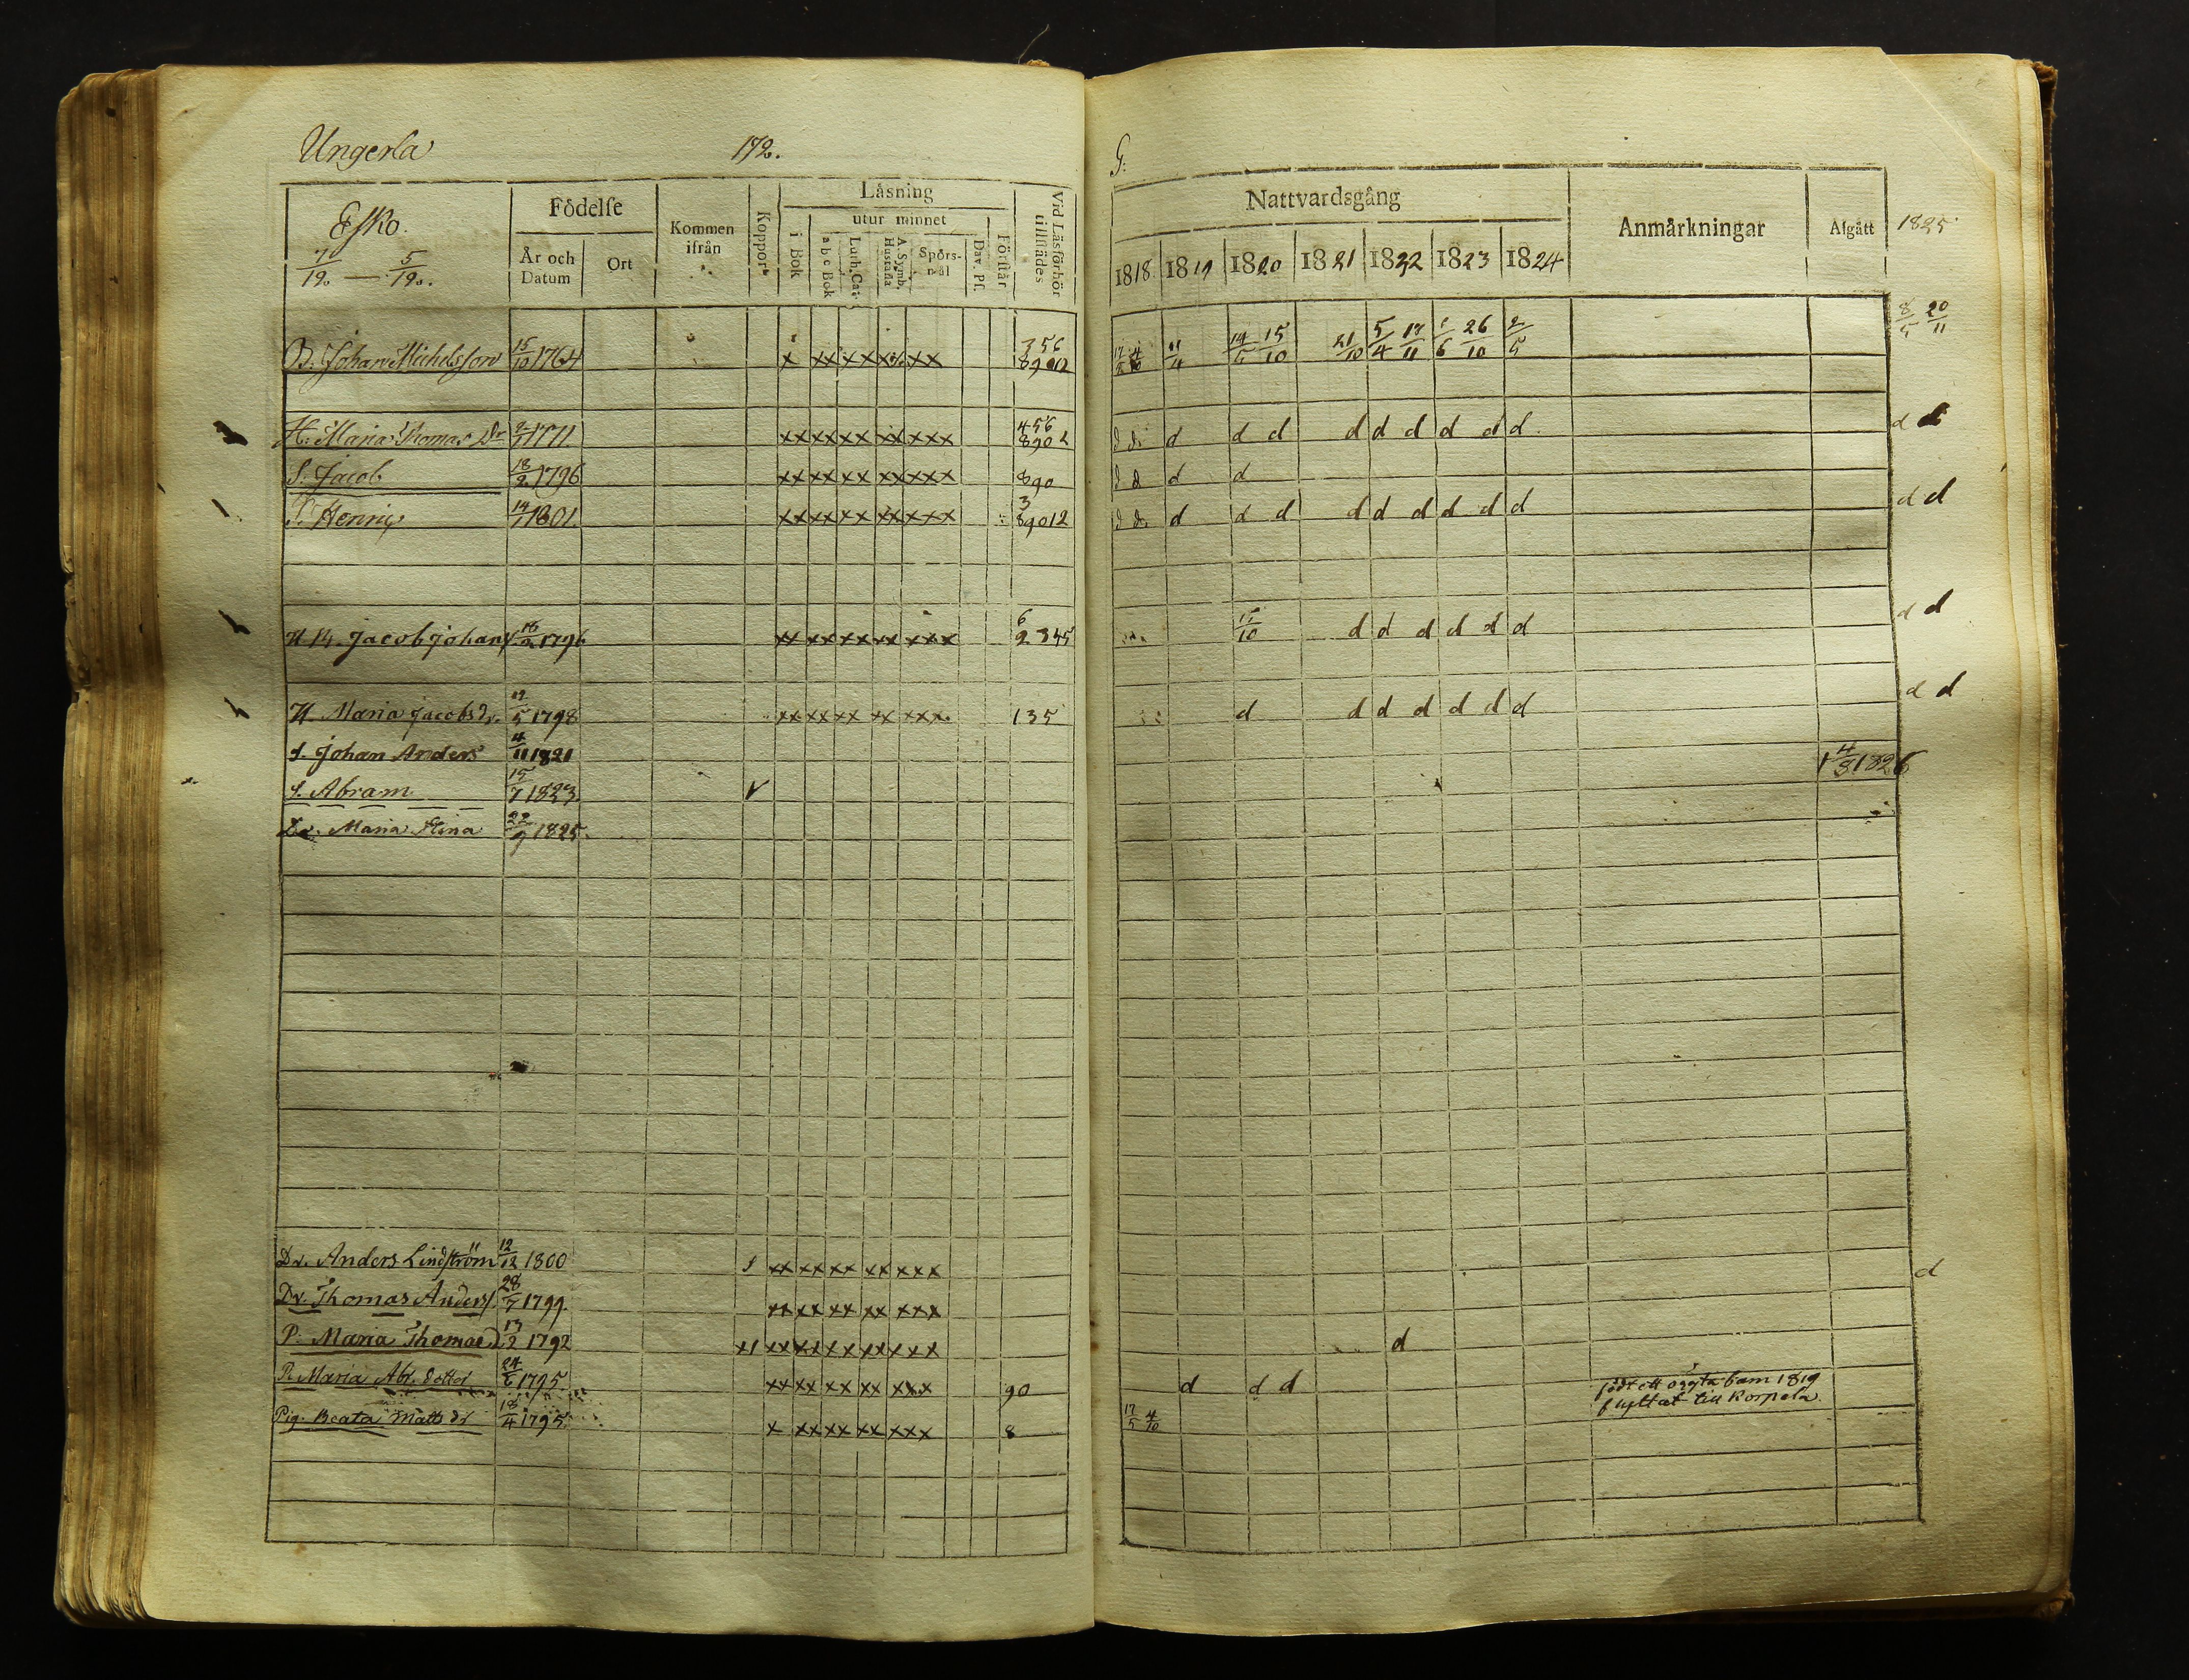 Ungerla 172.
Esko.
7/12. — 5/12.
Födelse
År och Datum
Ort
Kommen ifrån
Koppor
Läsning
utur minnet
i Bok
a b c Bok
Luth. Cat.
A. Symb. Hustafla
Spörsmål
Dav. Ps.
Förstår
Vid Läsförhör tillstädes
B. Johan Michelsson 15/10 1764 x xx xx xx xx 356 8902
H. Maria Thomas Dr xx xx xx xx xxx 456 8902
S. Jacob 18/2 1796 xx xx xx xx xxx 890
S. Henric 14/1 1801. xx xx xx xx xxx 3 89012
U B. Jacob Johans 18/2 1796 xx xx xx xx xxx 6 2345
H Maria Jacobsdr. 12/5 1798 xx xx xx xx xxx. 135
S. Johan Anders 4/11 1821
S. Abram 15/7 1823. v
Dr. Maria Stina 22/9 1825.
Dr. Anders Lindström 12/12 1800 xx xx xx xx xxx
Dr. Thomas Anders. 28/7 1799. xx xx xx xx xxx
P. Maria Thomae D. 13/2 1792 xx xx xx xx xxx
P. Maria Abr. dotter 24/6 1795. xx xx xx xx xxx 90
Pig. Beata Matts dr 18/4 1795. x xx xx xx xxx 8
G.
Nattvardsgång
Anmärkningar
Afgått
1825
1818 1819 1820 1821 1822 1823 1824
14/5 15/10 21/10 5/4 17/11 1/6 26/10 2/5 8/5 20/11
d d. d d d d d d d d d d d
d d d d
d d. d d d d d d d d d d d
15/10 d d d d d d d d
d d d d d d d d d
4/3 1826
d
d
d d d födt ett oägta barn 1819
flyttat till Korpela.
17/5 4/10